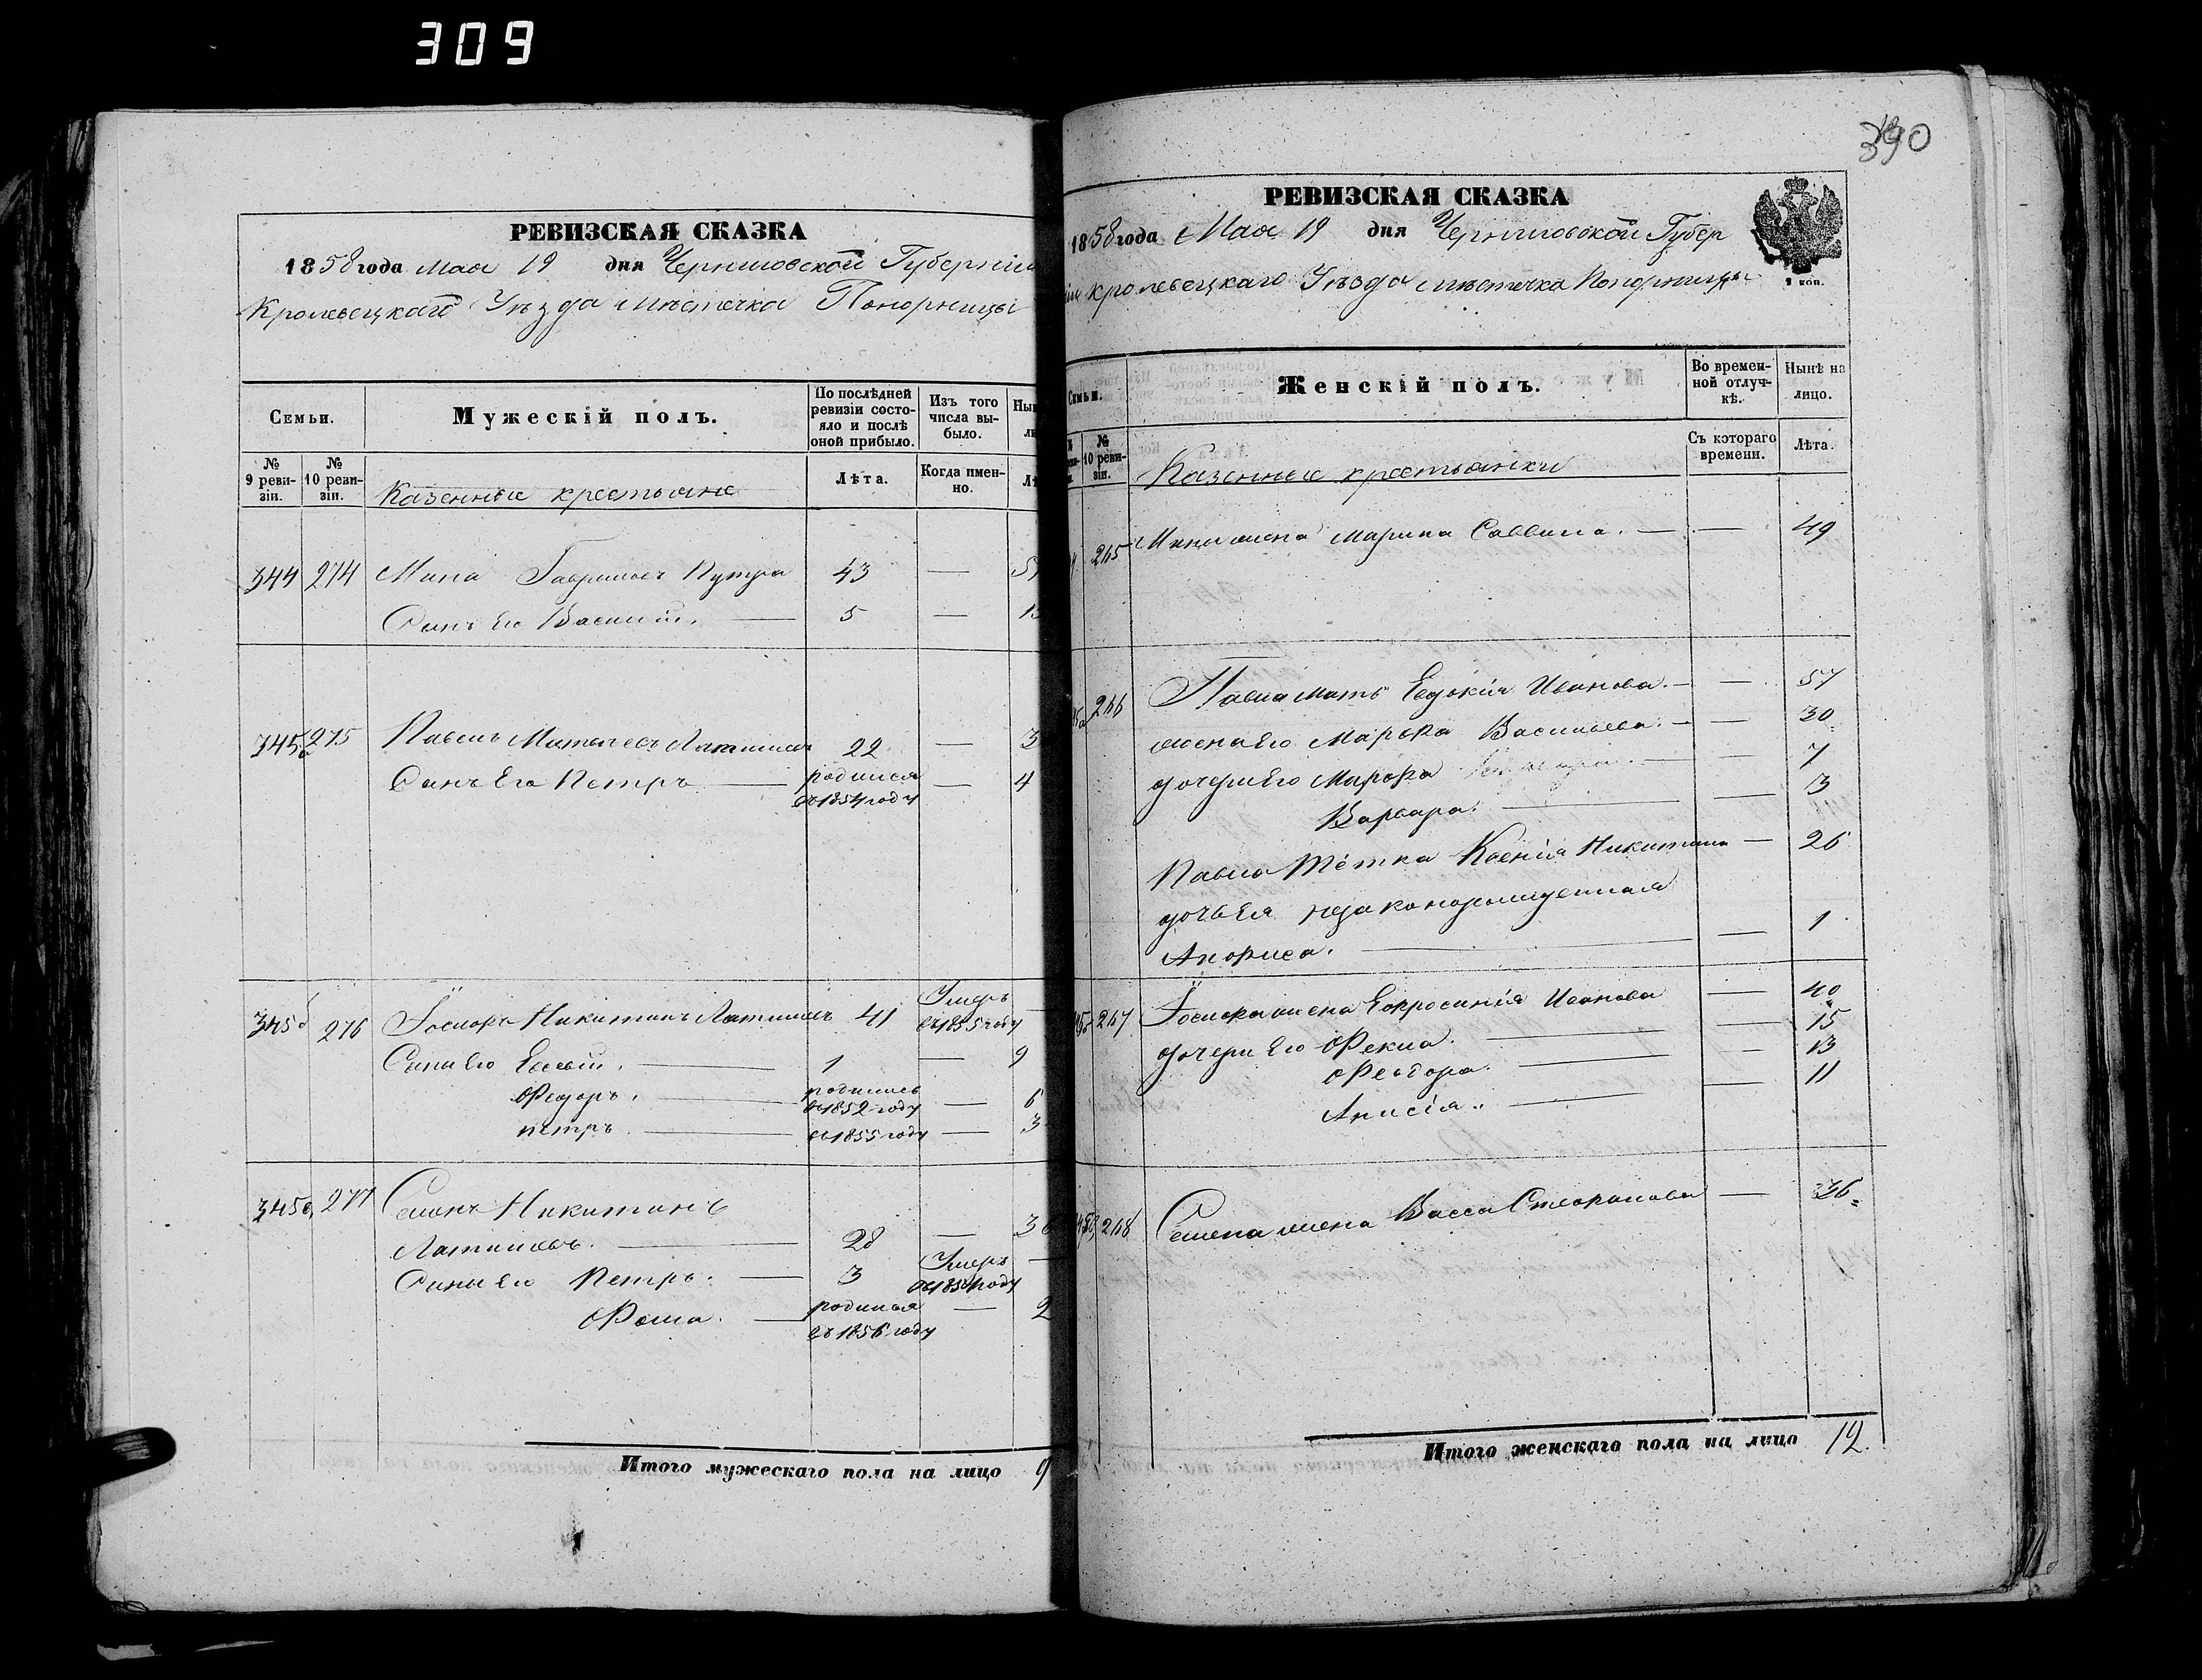 309
390
РЕВИЗСКАЯ СКАЗКА
1858 года Мая 19 дня Черниговской Губерніи
Кролевецкаго Уѣзда мѣстечка Понорницы
Семьи.
Мужескій полъ.
По послѣдней ревизіи состояло и послѣ оной прибыло.
Изъ того числа выбыло.
№ 9 ревизіи.
№ 10 ревизіи.
Казенные крестьяне
Лѣта.
Когда именно.
344 274 Мина Гавриловъ Путра 43 —
Сынъ Его Василій. — 5 —
345а 275 Павелъ Матвѣевъ Латышевъ 22 — 3
Сынъ Его Петръ — родился — 4
въ 1854 году
345б 276 Никитинъ Латышевъ 41 Умеръ —
въ 1855 году
Сыны Его Евсевій. — 1 — 9
Федоръ. — родились
въ 1852 году — 6
Петръ. — въ 1855 году — 3
345в 277 Семенъ Никитинъ
Латышевъ. — 28 — 36
Сыны Его Петръ. — 3 Умеръ —
въ 1854 году
Фома. — родился — 2
въ 1856 году
Итого мужескаго пола на лицо 9
РЕВИЗСКАЯ СКАЗКА
1858 года Мая 19 дня Черниговской Губер
ніи Кролевецкаго Уѣзда мѣстечка Понорницы
2 коп.
Семьи.
Женскій полъ.
Во временной отлучкѣ.
Нынѣ на лицо.
№ 10 ревизіи.
Казенные крестьянки
Съ котораго времени.
Лѣта.
265 Мины жена Марина Саввина. — — 49
266 Павла мать Евдокія Иванова. — — 57
жена Его Марѳа Васильева — — 30
дочери Его Марѳа — — 7
Варвара. — — 3
Павла тётка Ксенія Никитина — 26
дочь Ея незаконорожденная
Анфиса. — — 1
267 жена Евфросинія Иванова — 40
дочери Его Фекла. — — 15
Феодора. — — 13
Анисія. — — 11
268 Семена жена Васса Стефанова — 36
Итого женскаго пола на лицо 12.